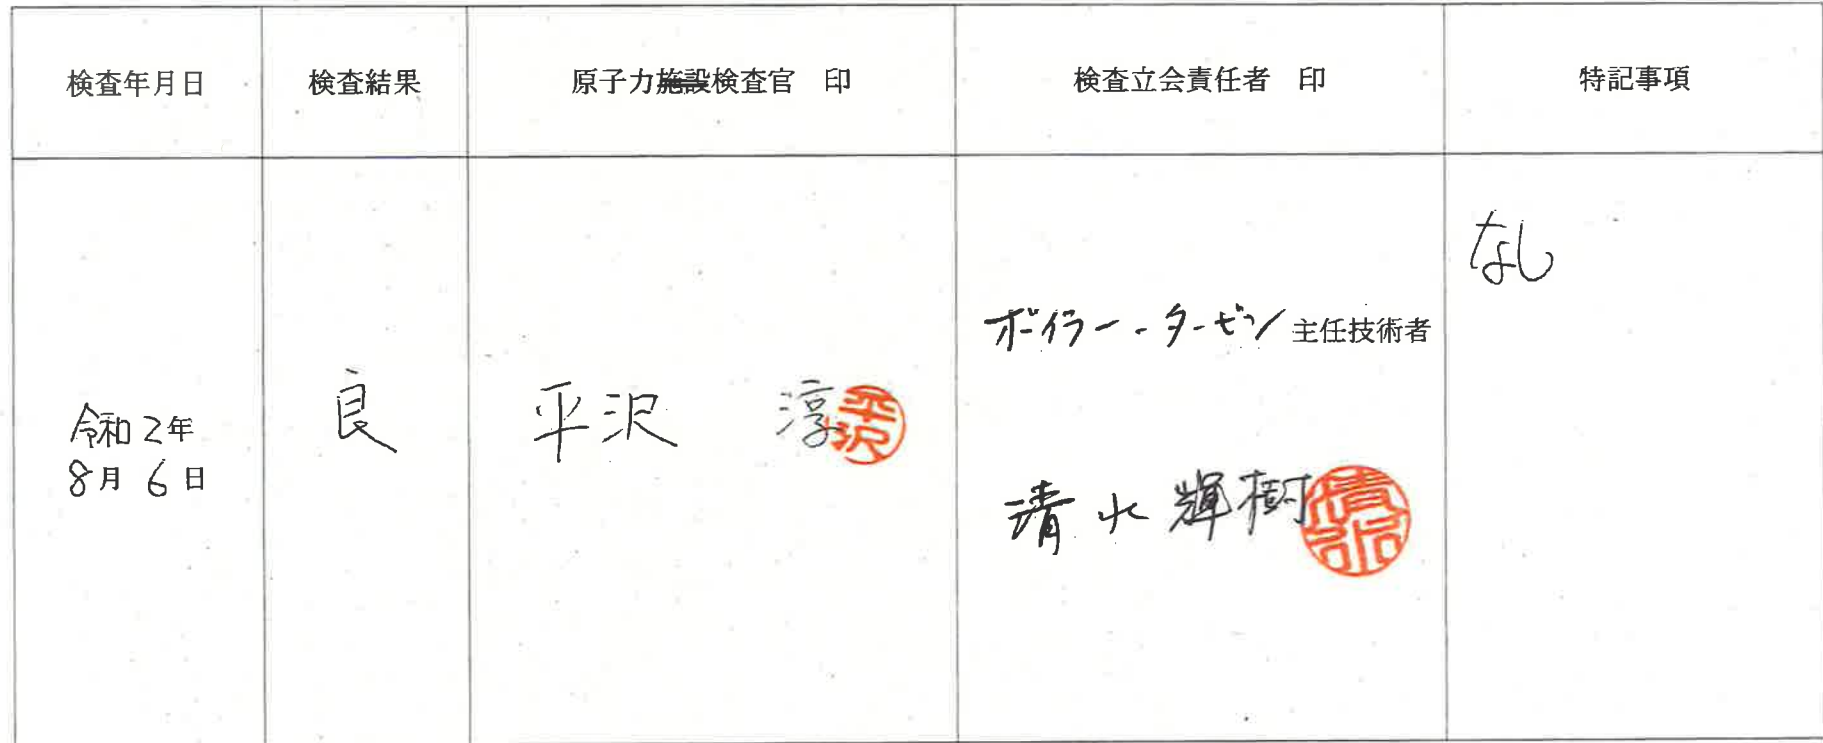 検査年月日
検査結果
原子力施設検査官 印
検査立会責任者 印
特記事項
令和2年
8月6日
良
平沢 淳
平沢
ボイラー・タービン主任技術者
清水輝樹
清水
なし